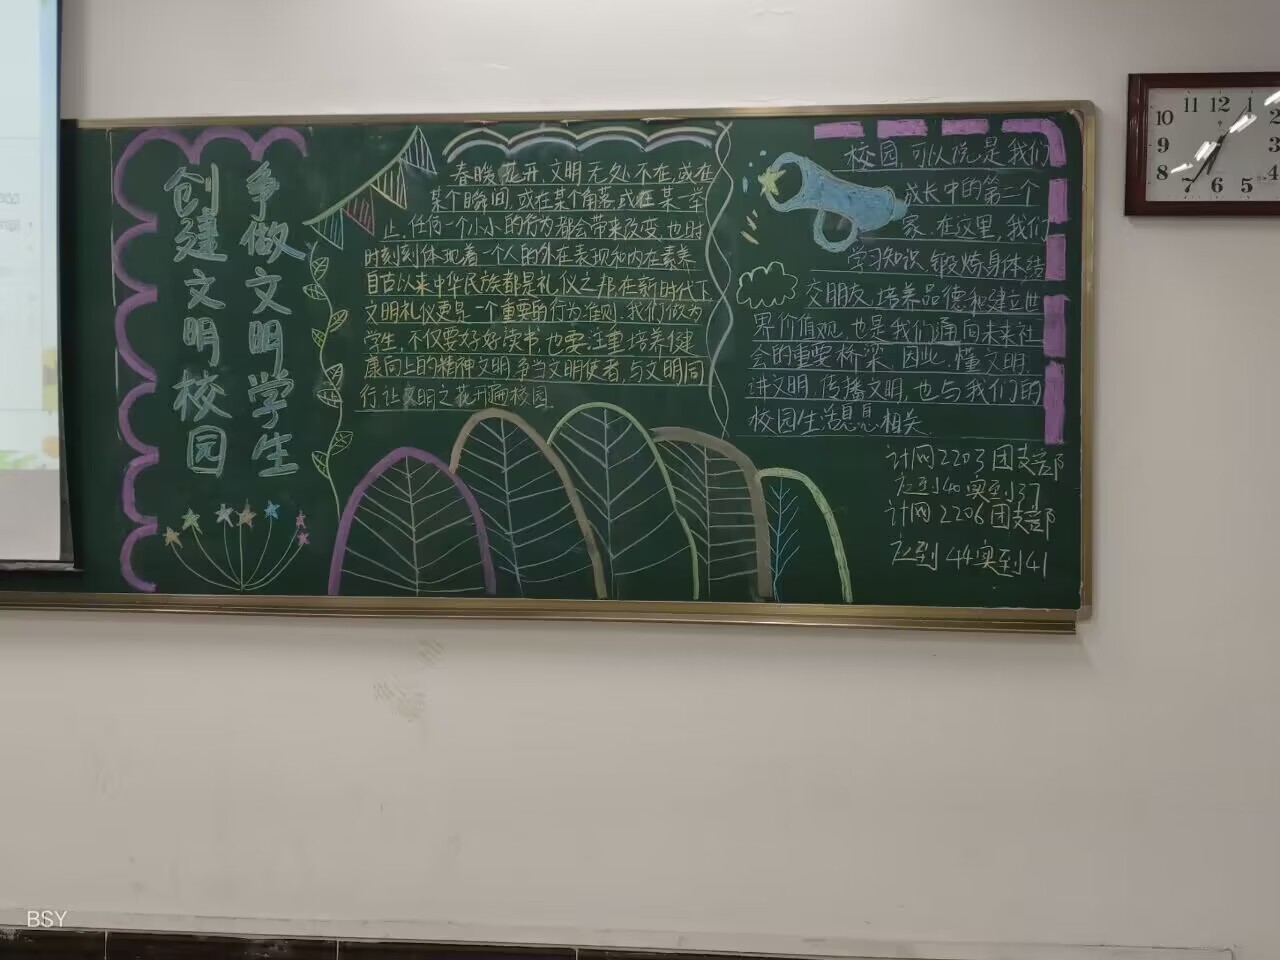 争做文明学生
创建文明校园
春暖花开,文明无处不在,或在
某个瞬间,或在某个角落,或在某一举
止,任何一个小小的行为都会带来改变,也时
时刻刻体现着一个人的外在表现和内在素养
自古以来中华民族都是礼仪之邦在新时代下
文明礼仪更是一个重要的行为准则.我们做为
学生,不仅要好好读书,也要注重培养健
康向上的精神文明,争当文明使者,与文明同
行,让文明之花开遍校园
校园,可以说是我们
成长中的第二个
家.在这里,我们
学习知识,锻炼身体结
交朋友.培养品德和建立世
界价值观,也是我们通向未来社
会的重要桥梁.因此,懂文明,
讲文明,传播文明,也与我们的
校园生活息息相关.
计网2203团支部
应到40实到37
计网2206团支部
应到44实到41
10 11 12 1
9
8 7 6 5
BSY